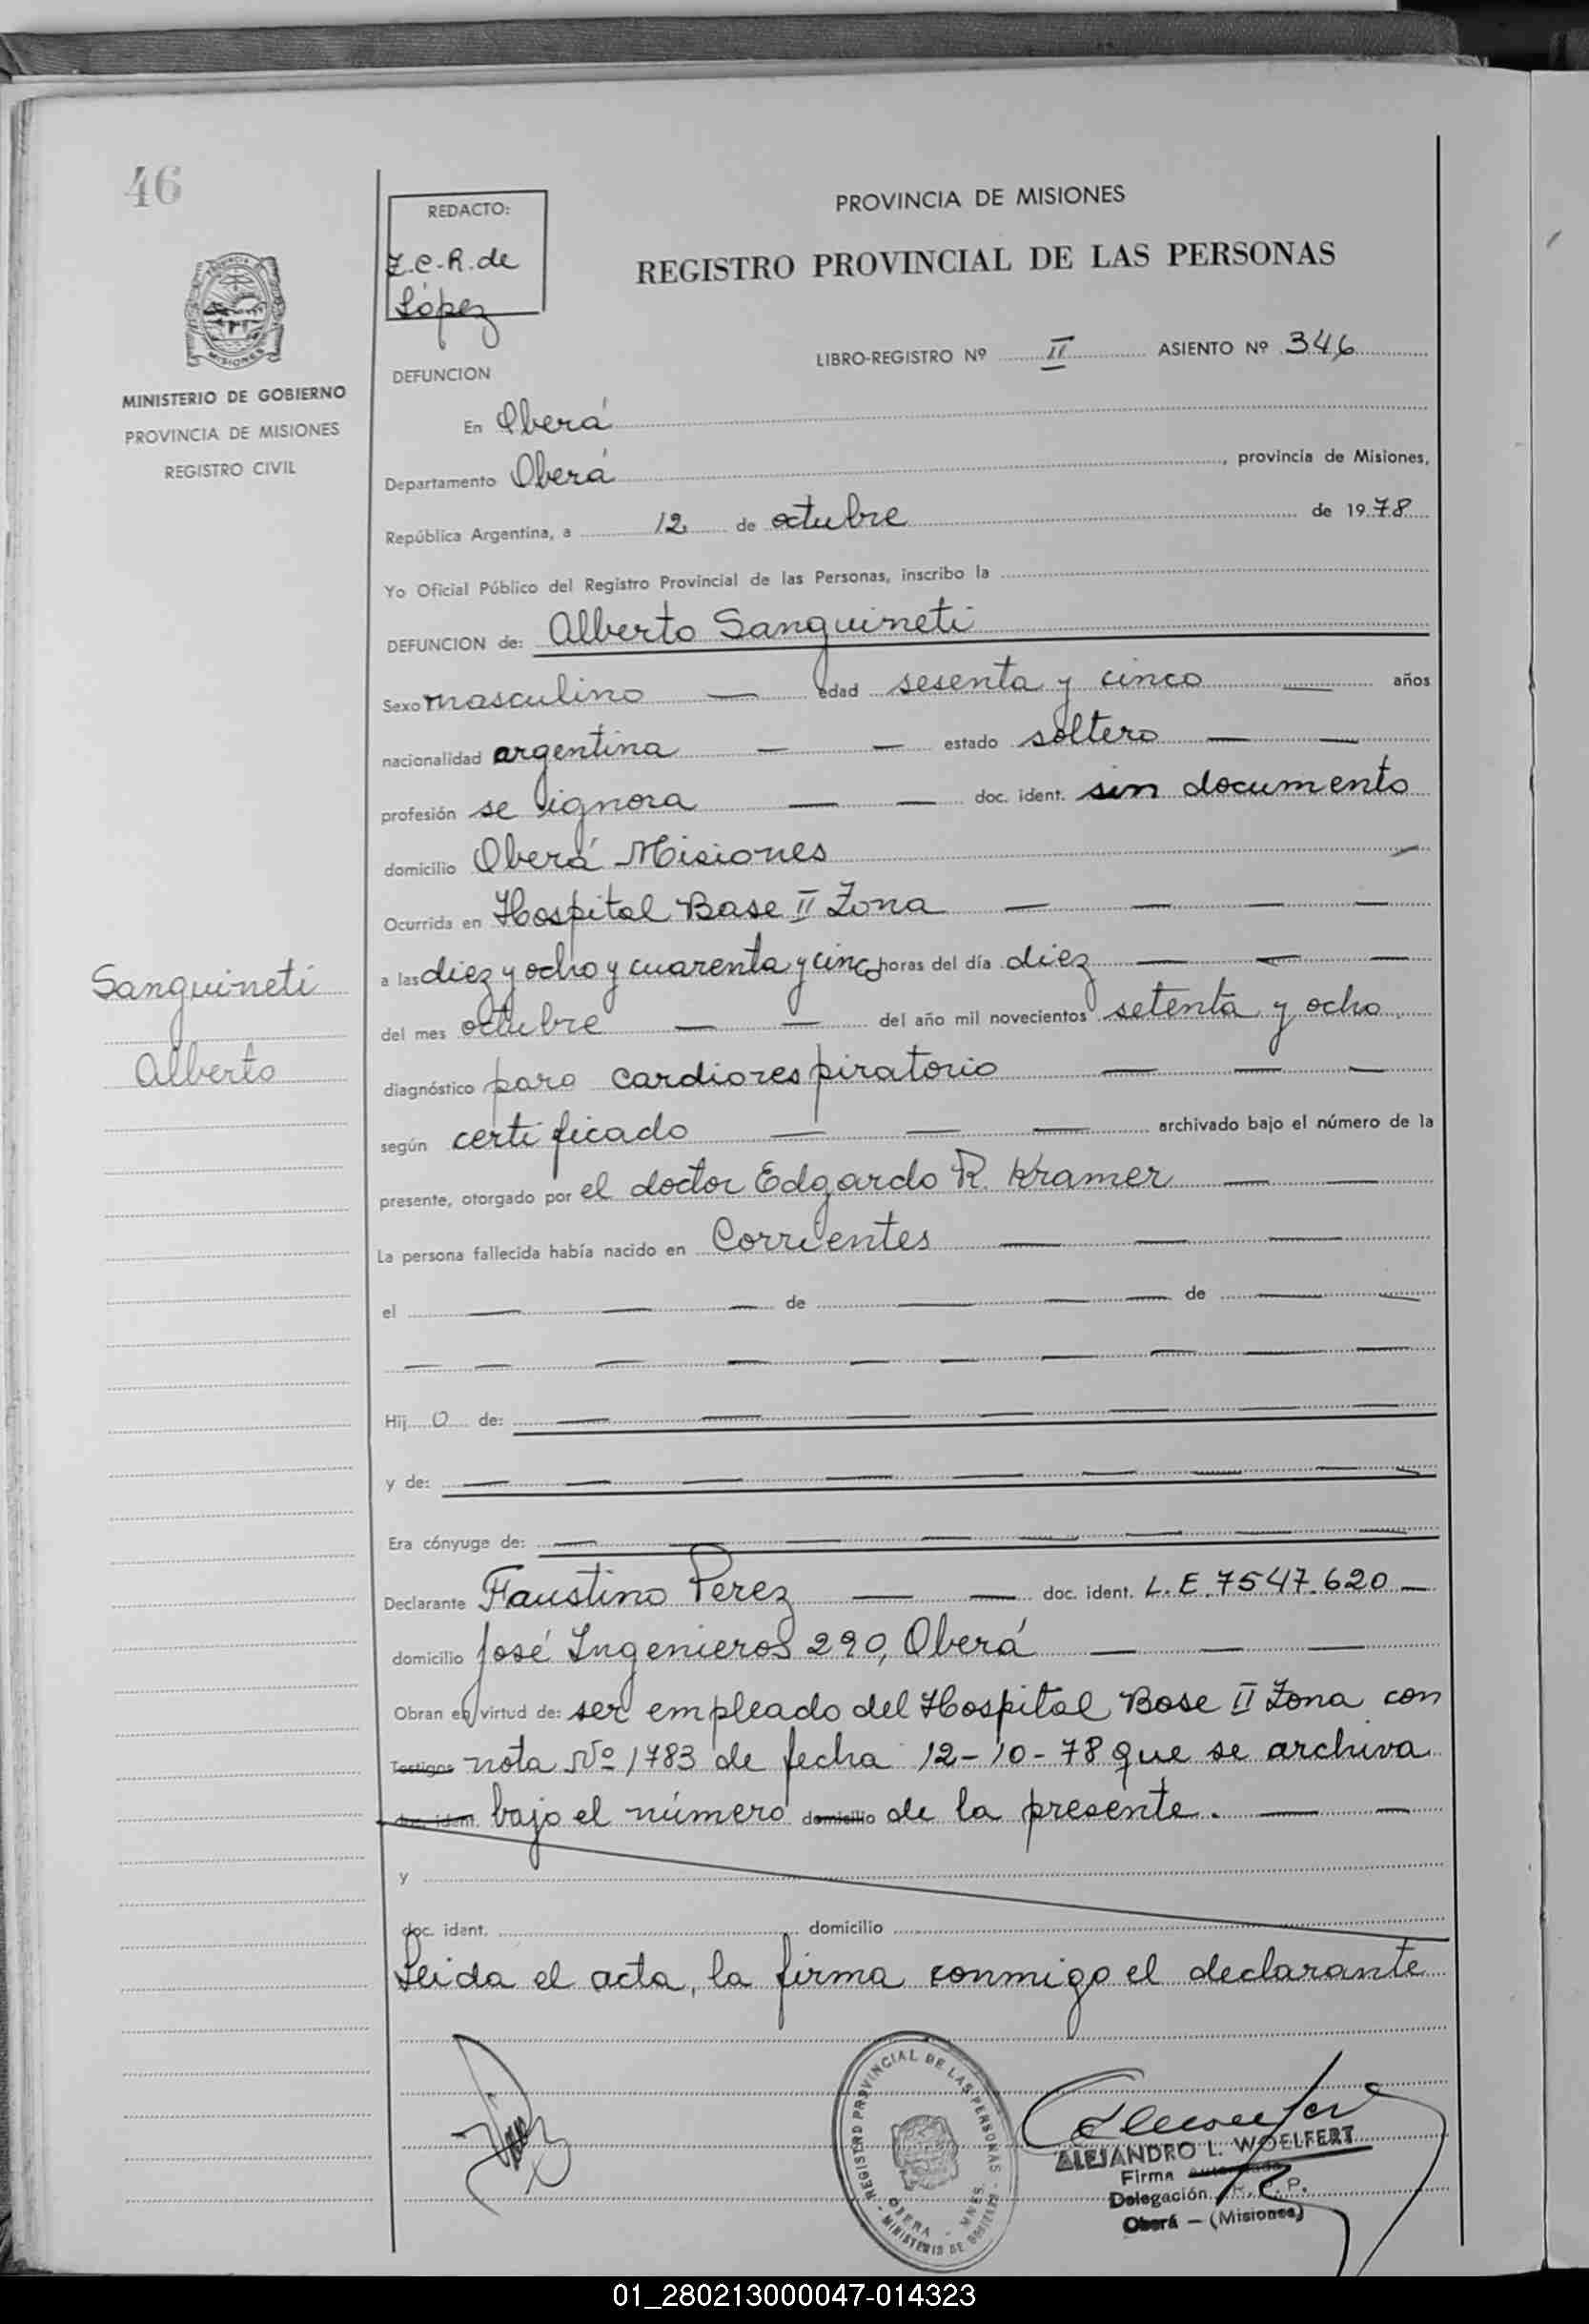 46
PROVINCIA DE MISIONES
MINISTERIO DE GOBIERNO
PROVINCIA DE MISIONES
REGISTRO CIVIL
REDACTO:
Z.C.R. de
López
PROVINCIA DE MISIONES
REGISTRO PROVINCIAL DE LAS PERSONAS
LIBRO-REGISTRO Nº II ASIENTO Nº 346
DEFUNCION
En Oberá
Departamento Oberá, provincia de Misiones,
República Argentina, a 12 de octubre de 1978
Yo Oficial Público del Registro Provincial de las Personas, inscribo la
DEFUNCION de: Alberto Sanguineti
Sexo masculino — edad sesenta y cinco — años
nacionalidad argentina — — estado soltero — —
profesión se ignora — — doc. ident. sin documento
domicilio Oberá Misiones —
Ocurrida en Hospital Base II Zona — — — —
Sanguineti
Alberto
a las diez y ocho y cuarenta y cinco horas del día diez — — —
del mes octubre — — del año mil novecientos setenta y ocho
diagnóstico paro cardiorespiratorio — — —
según certificado — — — archivado bajo el número de la
presente, otorgado por el doctor Edgardo R. Kramer — —
La persona fallecida había nacido en Corrientes — — —
el — — — de — — — de — —
— — — — — — — — — —
Hij o de: — — — — — — —
y de: — — — — — — — — —
Era cónyuge de: — — — — — — —
Declarante Faustino Perez — — doc. ident. L.E. 7547.620 —
domicilio José Ingenieros 290, Oberá — — —
Obran en virtud de: ser empleado del Hospital Base II Zona con
Testigos nota Nº 1783 de fecha 12-10-78 que se archiva
doc. ident. bajo el número domicilio de la presente. — —
y
doc. ident. domicilio
Leida el acta, la firma conmigo el declarante
REGISTRO PROVINCIAL DE LAS PERSONAS
- MINISTERIO DE GOBIERNO -
OBERA - MNES.
ALEJANDRO L. WOELFERT
Firma Autorizada
Delegación R. P. P.
Oberá - (Misiones)
01_280213000047-014323